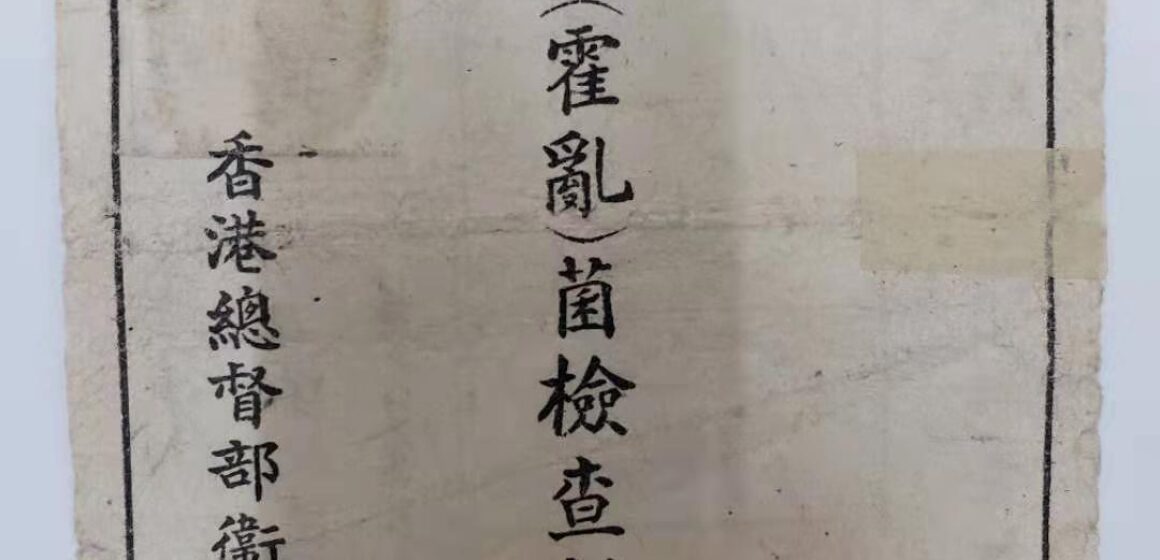 （霍亂）菌檢查
香港總督部衛